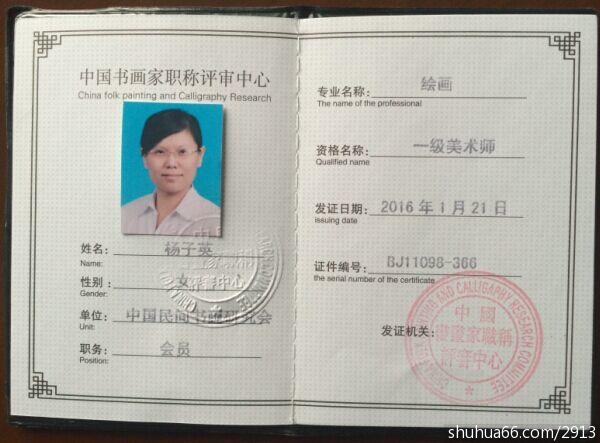 中国书画家职称评审中心
China folk painting and Calligraphy Research
姓名： 杨子英
Name:
性别： 女
Gender:
单位： 中国民间书画研究会
Unit:
职务： 会员
Position:
专业名称： 绘画
The name of the professional
资格名称： 一级美术师
Qualified name
发证日期： 2016 年 1 月 21 日
issuing date
证件编号： BJ11098-366
the serial number of the certificate
发证机关：
中國
書畫家職稱
評審中心
AND CALLIGRAPHY RESEARCH COMMITTEE
shuhua66.com/2913